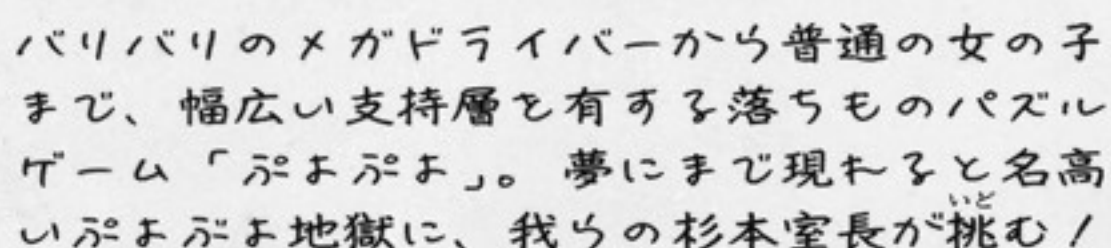 バリバリのメガドライバーから普通の女の子
まで、幅広い支持層を有する落ちものパズル
ゲーム「ぷよぷよ」。夢にまで現れると名高
いぷよぷよ地獄に、我らの杉本室長が挑む！
いど